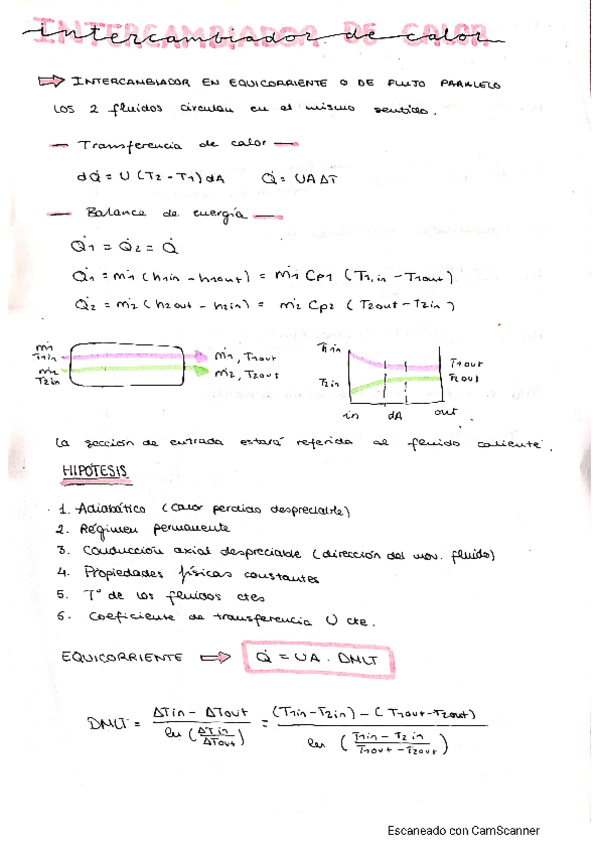 INTERCAMBIADOR DE CALOR
intercambiador de calor
⇒ INTERCAMBIADOR EN EQUICORRIENTE O DE FLUJO PARALELO
LOS 2 fluidos circulan en el mismo sentido.
— Transferencia de calor —
dQ̇ = U (T2 - T1) dA Q̇ = UA ΔT
— Balance de energía —
Q̇1 = Q̇2 = Q̇
Q̇1 = ṁ1 (h1in - h1out) = ṁ1 Cp1 (T1,in - T1out)
Q̇2 = ṁ2 (h2out - h2in) = ṁ2 Cp2 (T2out - T2in)
ṁ1
T1in
ṁ2
T2in
ṁ1, T1out
ṁ2, T2out
T1in
T2in
T1out
T2out
in dA out
La sección de entrada estará referida al fluido caliente.
HIPÓTESIS
1. Adiabático (calor perdido despreciable)
2. Régimen permanente
3. Conducción axial despreciable (dirección del mov. fluido)
4. Propiedades físicas constantes
5. Tº de los fluidos ctes
6. Coeficiente de transferencia U cte.
EQUICORRIENTE ⇒ Q̇ = UA · DMLT
DMLT = (ΔTin - ΔTout) / ln (ΔTin / ΔTout) = ((T1in - T2in) - (T1out - T2out)) / ln ((T1in - T2in) / (T1out - T2out))
Escaneado con CamScanner